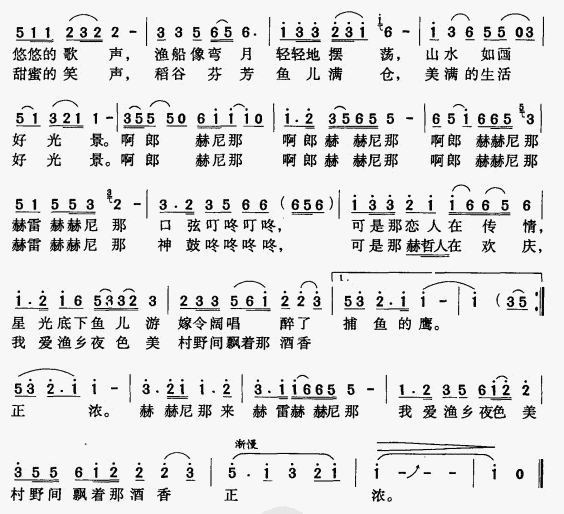 511 2322 - | 335 656. | i33 231 6 - | i36 5503 |
悠悠的歌声，渔船像弯月轻轻地摆荡，山水如画
甜蜜的笑声，稻谷芬芳鱼儿满仓，美满的生活
51 321 1 - | 355 50 61 i i0 | i.2 35655 - | 65i 6665 3 |
好光景。啊郎赫尼那啊郎赫赫尼那啊郎赫赫尼那
好光景。啊郎赫尼那啊郎赫赫尼那啊郎赫赫尼那
51 553 2 - | 3.2 35 66 (656) | i33 2i i665 6 |
赫雷赫赫尼那口弦叮咚叮咚，可是那恋人在传情，
赫雷赫赫尼那神鼓咚咚咚咚，可是那赫哲人在欢庆，
1.
i.2 i6 5332 3 | 233 56i 223 | 53 2.i i - | i (35 :||
星光底下鱼儿游嫁令阔唱醉了捕鱼的鹰。
我爱渔乡夜色美村野间飘着那酒香
53 2.i i - | 3.2i i.2 | 3.i i665 5 - | 1.2 35 6i2 2 |
正浓。赫赫尼那来赫雷赫赫尼那我爱渔乡夜色美
渐慢
355 6i2 2 23 | 5. i 3 2i | i - - - | i 0 ||
村野间飘着那酒香正浓。